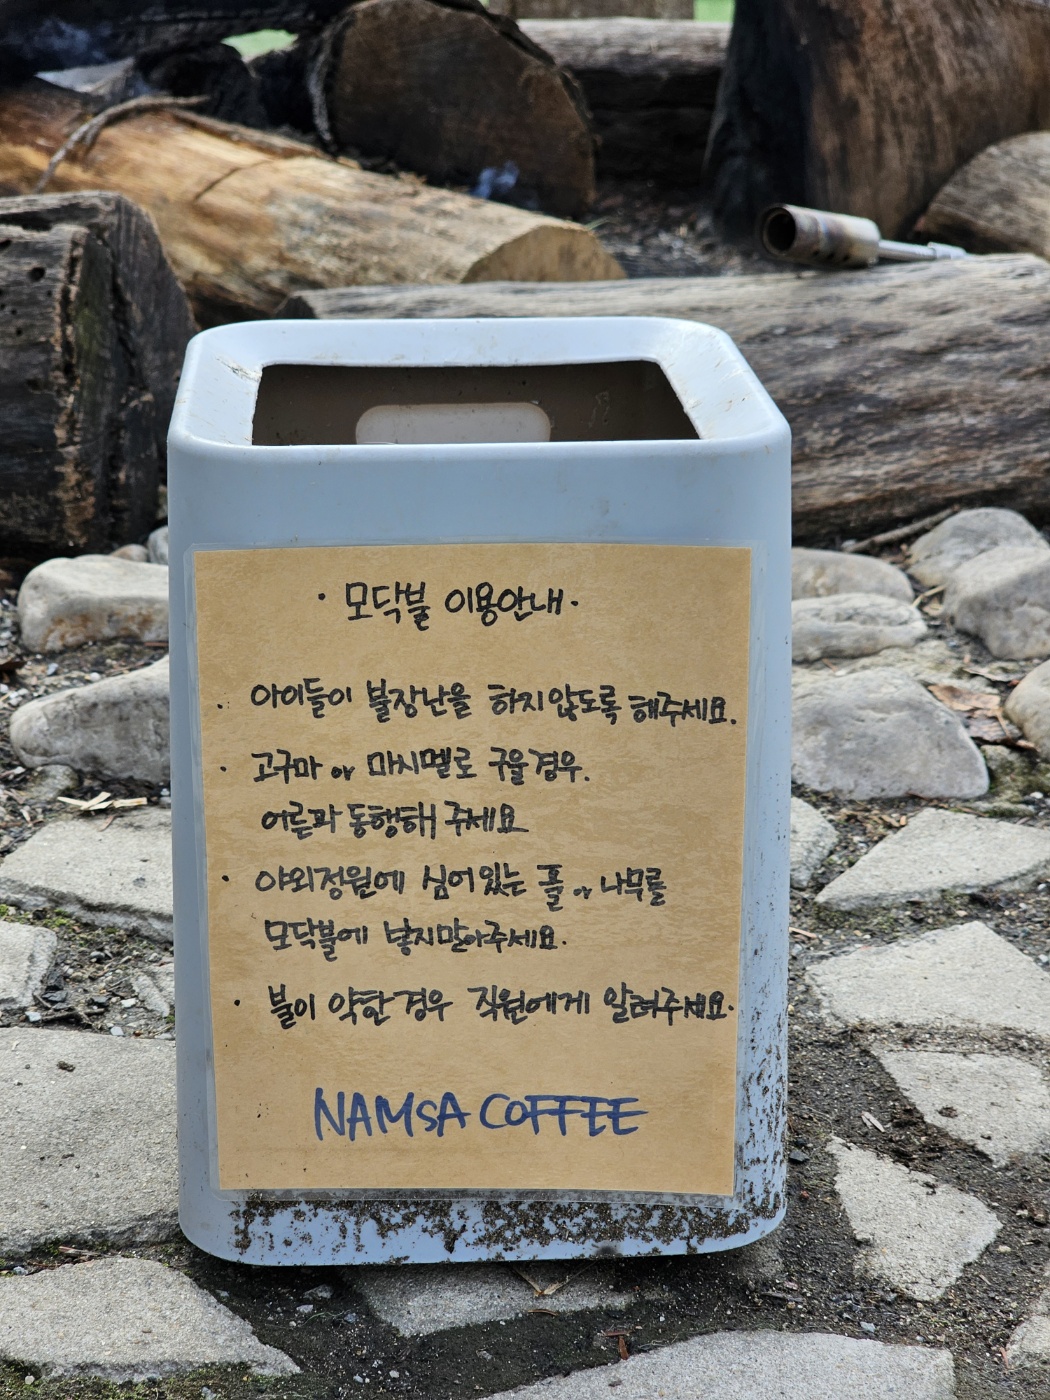 · 모닥불 이용안내 ·
· 아이들이 불장난을 하지않도록 해주세요.
· 고구마 or 마시멜로 구울경우.
어른과 동행해 주세요
· 야외정원에 심어있는 풀 or 나무를
모닥불에 넣지말아주세요.
· 불이 약한 경우 직원에게 알려주세요.
NAMSA COFFEE